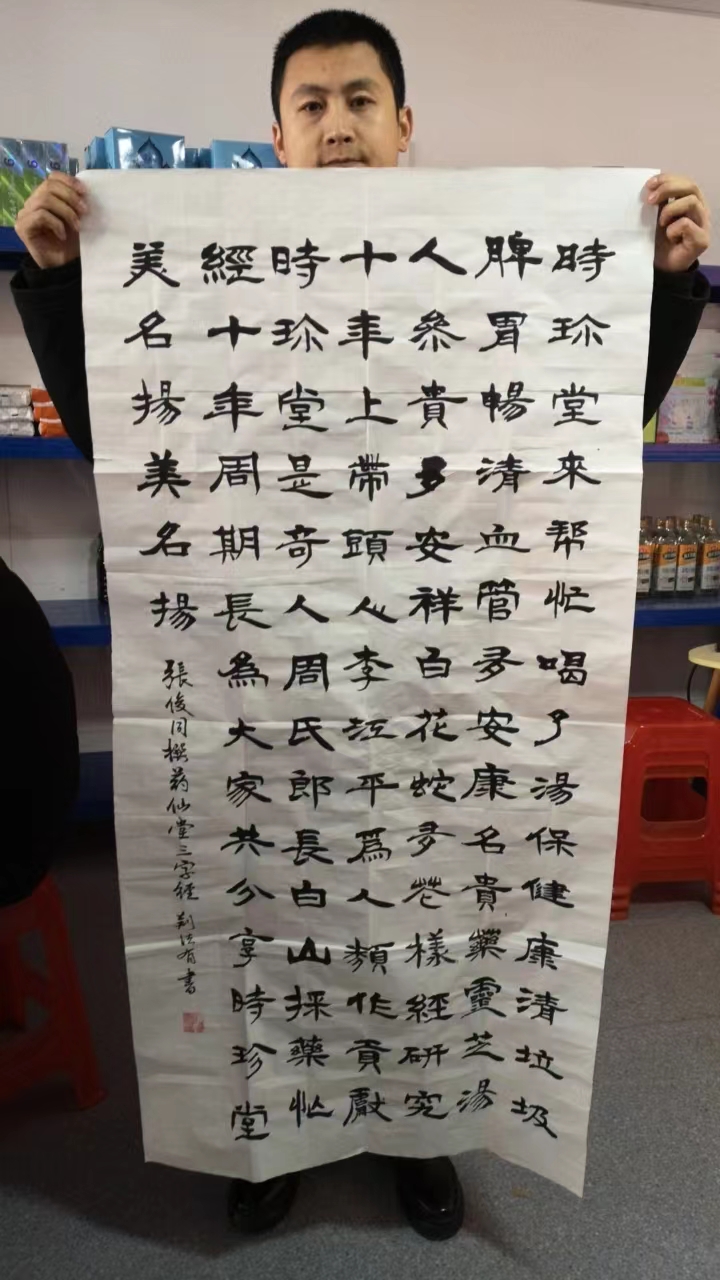 時珎堂來帮忙喝了湯保健康清垃圾
脾胃暢清血管多安康名貴藥靈芝湯
人参貴多安祥白花蛇多花樣經研究
十年上帶頭人李江平為人類作貢獻
時珎堂是奇人周氏郎長白山採藥忙
經十年周期長為大家共分享時珍堂
美名揚美名揚
張俊同撰药仙堂三字經 荆江有書